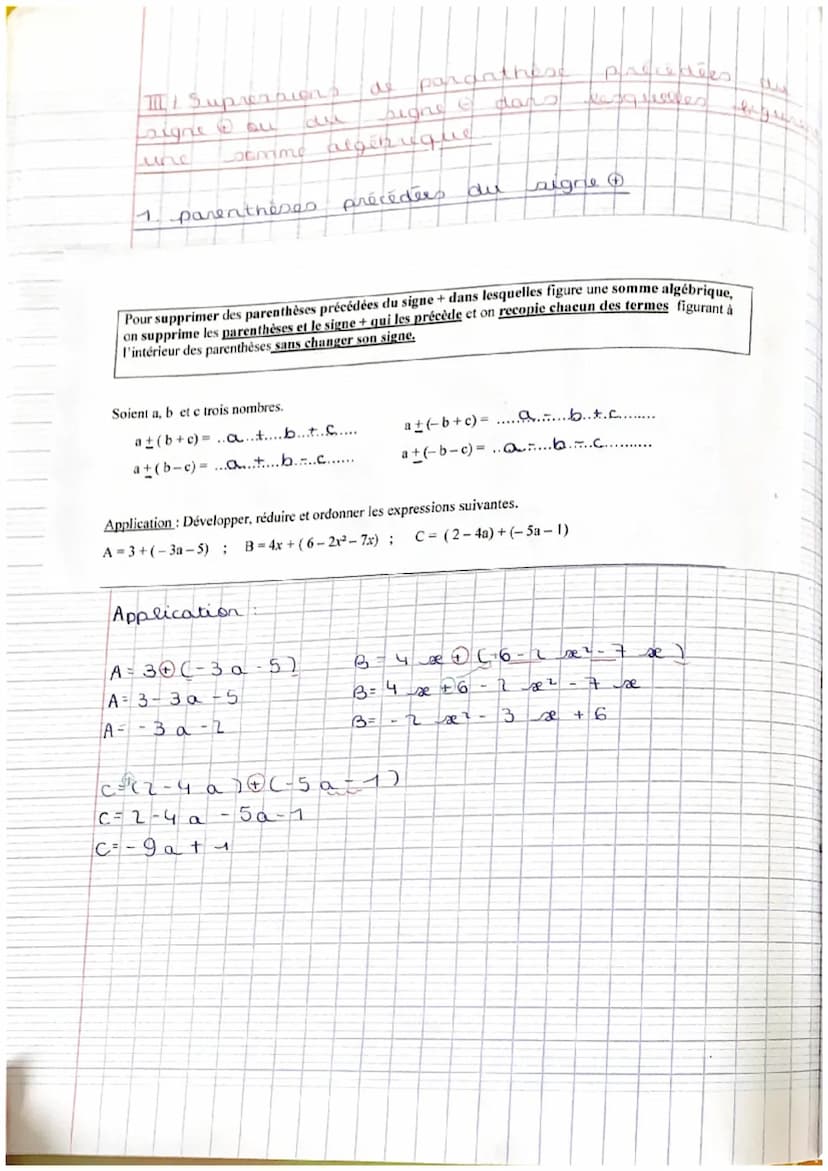 III / Supressions de paranthèse précédées du
signe ⊕ ou du signe ⊖ dans lesquelles figure
une somme algébrique
1. parenthèses précédées du signe ⊕
Pour supprimer des parenthèses précédées du signe + dans lesquelles figure une somme algébrique,
on supprime les parenthèses et le signe + qui les précède et on recopie chacun des termes figurant à
l'intérieur des parenthèses sans changer son signe.
Soient a, b et c trois nombres.
a + ( b + c) = ..a...+....b...+..c..... a + (– b + c) = ......a....-....b..+.c........
a + ( b – c) = ...a...+....b.-...c...... a + (– b – c) = ..a.-....b.-..c..........
Application : Développer, réduire et ordonner les expressions suivantes.
A = 3 + ( – 3a – 5) ; B = 4x + ( 6 – 2x² – 7x) ; C = ( 2 – 4a) + (– 5a – 1)
Application :
A = 3 ⊕ ( - 3 a - 5 ) B = 4 x ⊕ ( +6 - 2 x² - 7 x )
A = 3 - 3 a - 5 B = 4 x + 6 - 2 x² - 7 x
A = - 3 a - 2 B = - 2 x² - 3 x + 6
C = ⊕( 2 - 4 a ) ⊕ ( - 5 a - 1 )
C = 2 - 4 a - 5 a - 1
C = - 9 a + 1